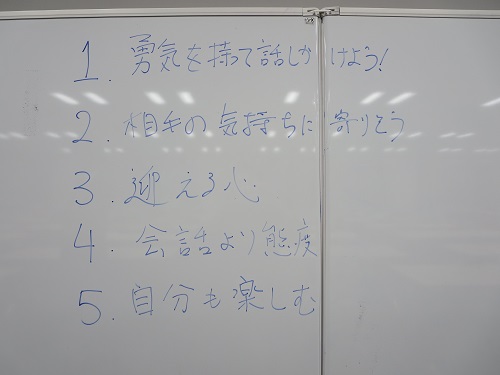 1. 勇気を持って話しかけよう!
2. 相手の気持ちに寄りそう
3. 迎える心
4. 会話より態度
5. 自分も楽しむ